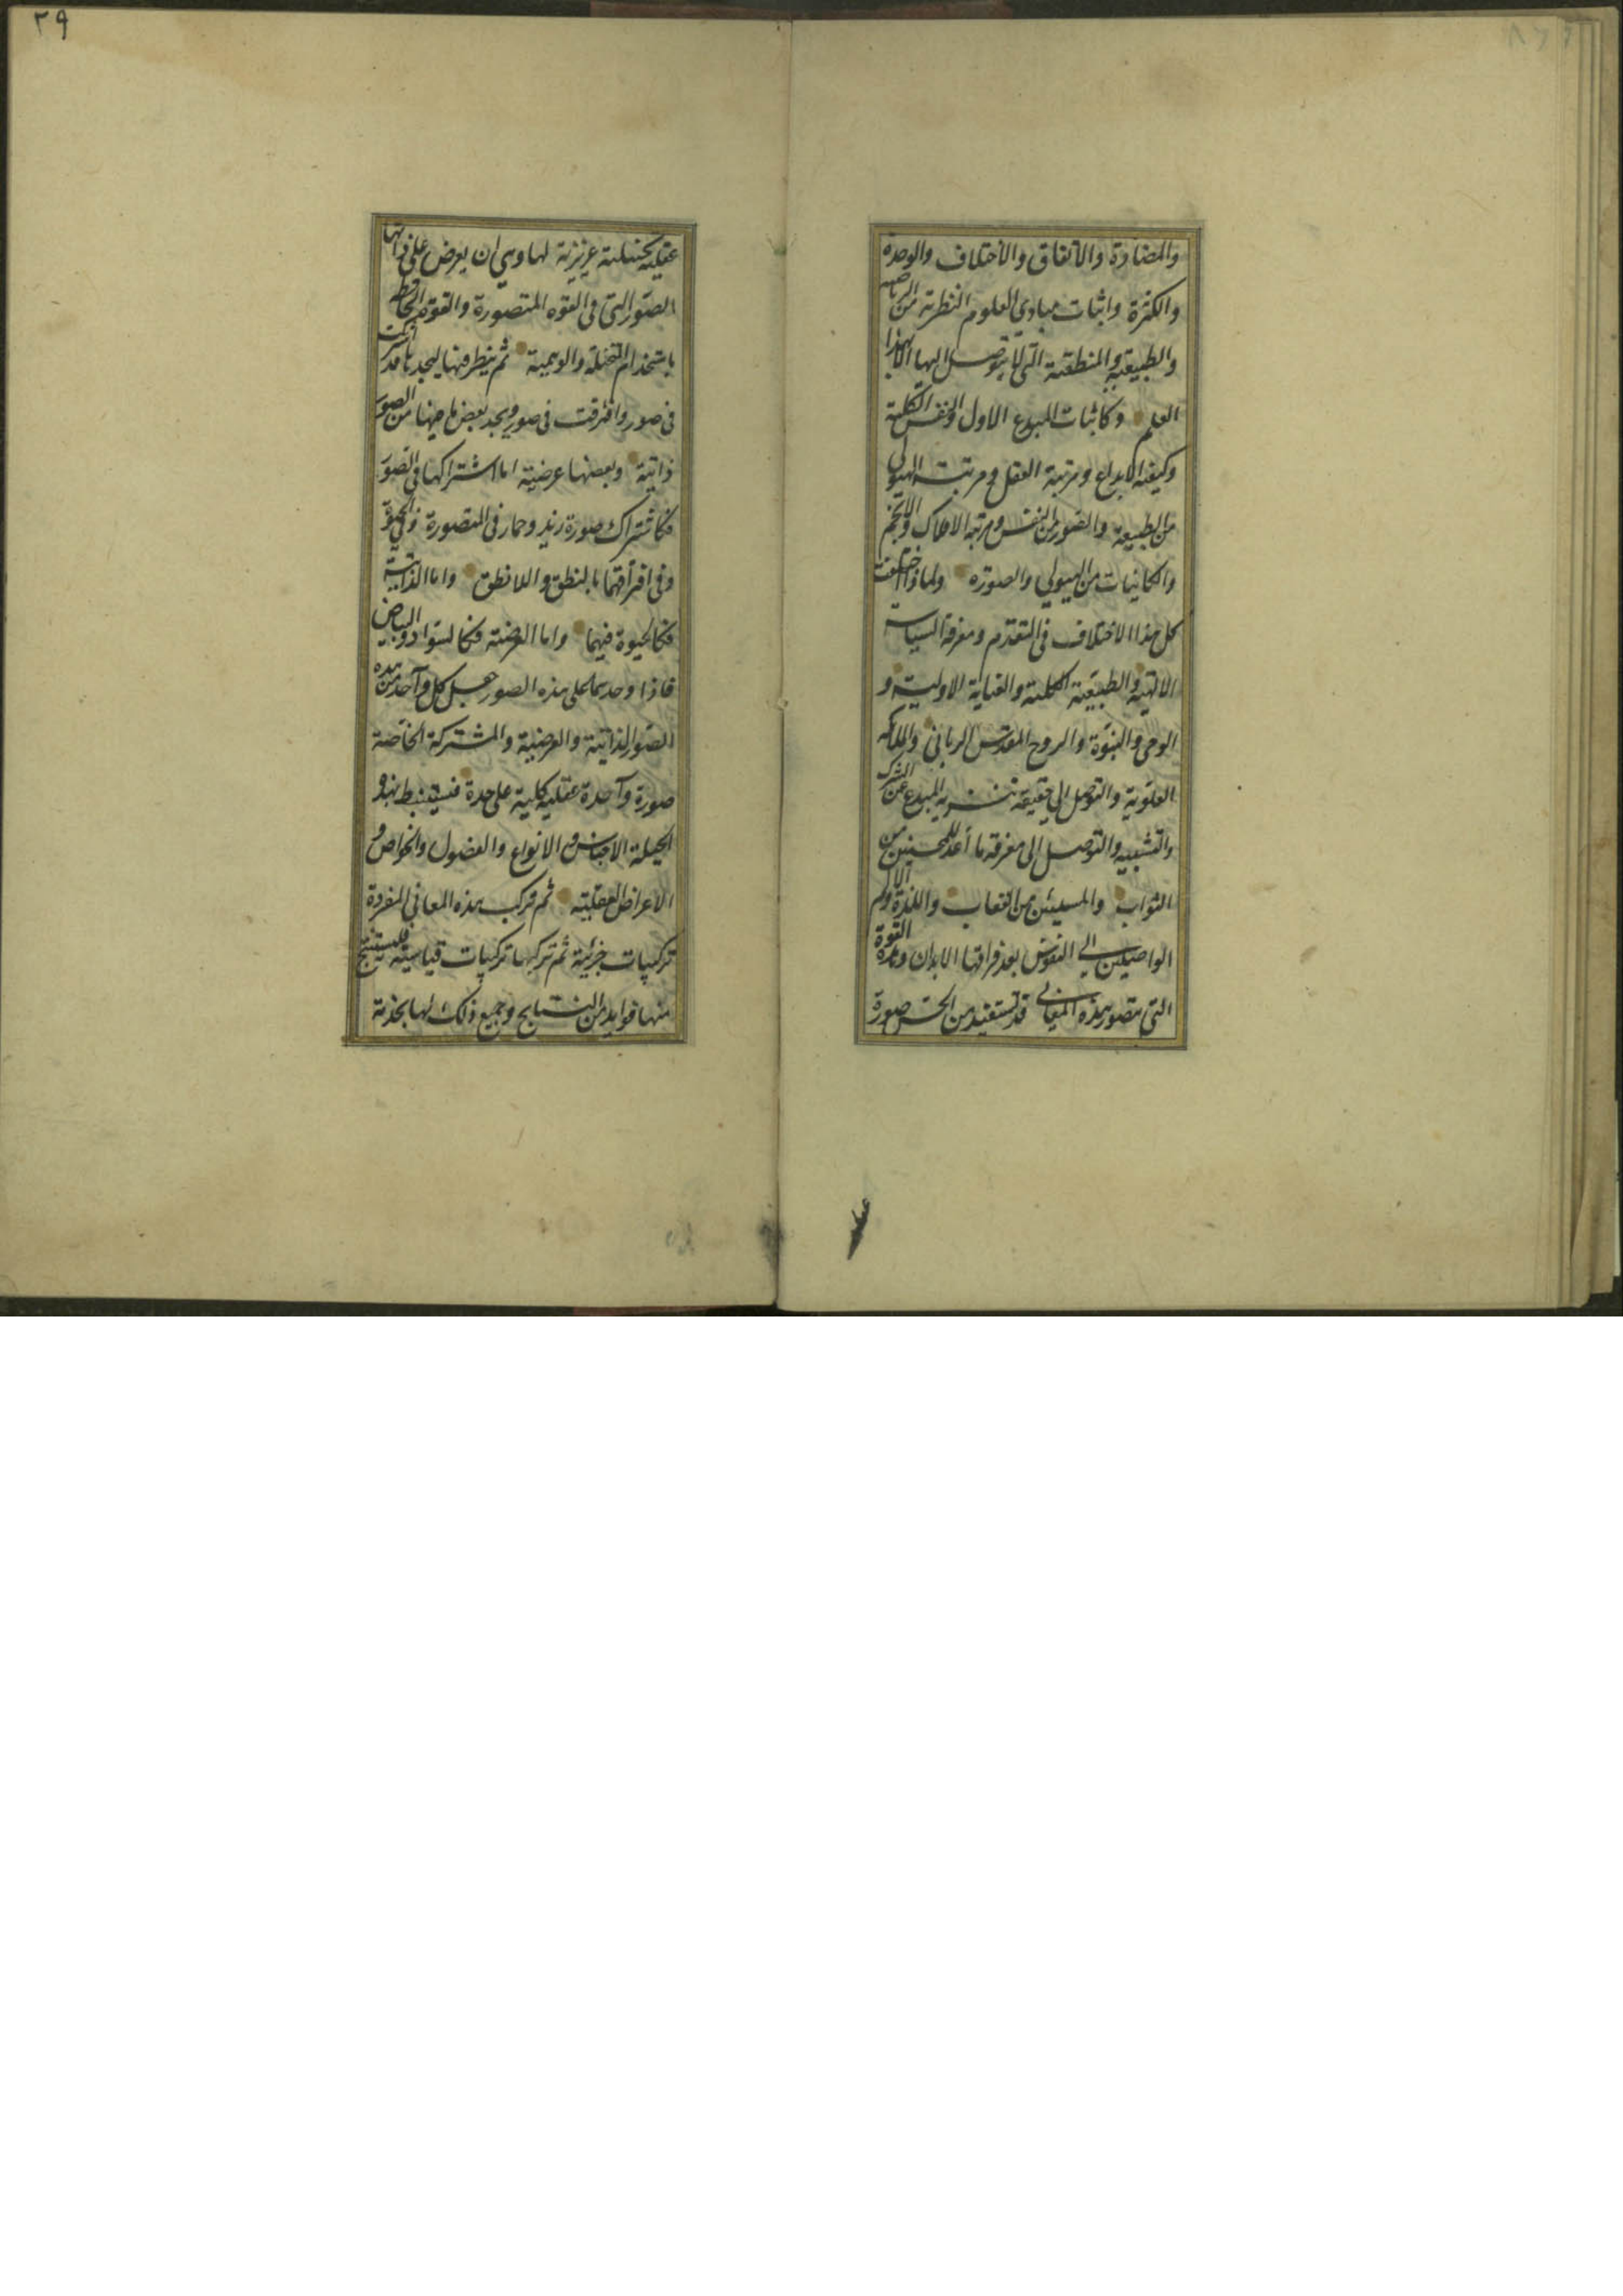 والمضادة والاتفاق والاختلاف والوحدة
والكثرة واثبات مبادى العلوم النظرية من الرياضية
والطبيعية والمنطقية التى لا يتوصل اليها الا بهذا
العلم وكاثبات المبدع الاول والنفس الكلية
وكيفية الابداع ومرتبة العقل ومرتبة الهيولى
من الطبيعة والصور من النفس ومرتبة الافلاك والانجم
والكاينات من الهيولى والصورة ولماذا اختلفت
كل هذا الاختلاف فى التقدم ومعرفة السياسة
الالهية والطبيعية الكلية والعناية الاولية و
الوحى والنبوة والروح المقدس الربانى والملائكة
العلوية والتوصل الى حقيقة تنزيه المبدع عن الشرك
والتشبيه والتوصل الى معرفة ما أعد للمحسنين من
الثواب والمسيئين من العقاب واللذة والالم
الواصلين الى النفوس بعد فراقها الابدان وهذه القوة
التى تتصور هذه المعانى قد تستفيد من الحس صورة
٢٩
عقلية بحيلة غريزية لها وهي ان يعرض على ذاتها
الصور التى فى القوه المتصورة والقوه الحافظة
باستخدام المتخيلة والوهمية ثم ينظر فيها ليجدها قد اشتركت
فى صور وافترقت فى صور ويجد بعض ما فيها من الصور
ذاتية وبعضها عرضية اما اشتراكها فى الصور
فكاشتراك صورة زيد وحمار فى المتصورة وفى الحيوة
وفى افتراقهما بالنطق واللانطق واما الذاتية
فكالحيوة فيهما واما العرضية فكالسواد والبياض
فاذا وجدتها على هذه الصور جعل كل واحد من هذه
الصور الذاتية والعرضية والمشتركة الخاصة
صورة واحدة عقلية كلية على حدة فيستنبط بهذه
الحيلة الاجناس والانواع والفصول والخواص و
الاعراض العقلية ثم تركب هذه المعانى المفردة
تركيبات جزئية ثم تركبها تركيبات قياسية فيستنتج
منها فوايد من النتايج وجميع ذلك لها بخدمة